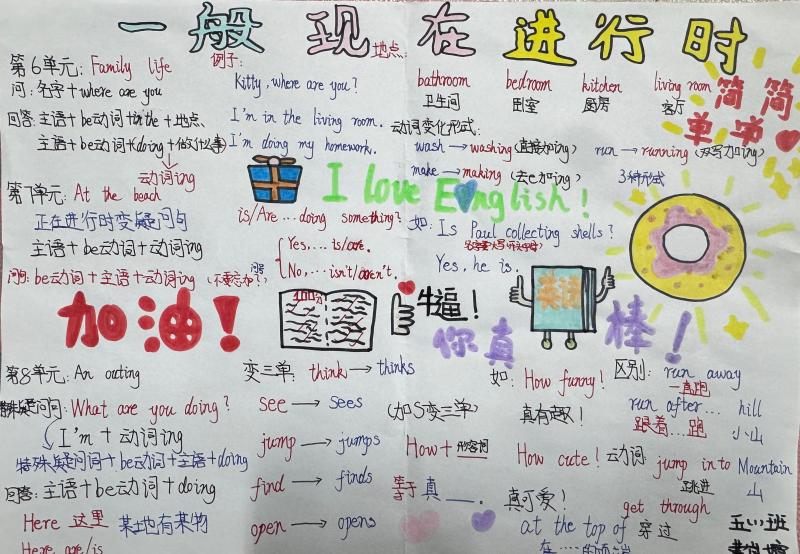 一般现在进行时
第6单元: Family life
问: 名字+where are you
回答: 主语+be动词+in the+地点
主语+be动词+doing+做什么事
动词ing
例子:
Kitty, where are you?
I'm in the living room.
I'm doing my homework.
地点:
bathroom bedroom kitchen living room
卫生间 卧室 厨房 客厅
动词变化形式:
wash → washing (直接加ing) run → running (双写加ing)
make → making (去e加ing) 3种形式
简简
单单
I love English!
第7单元: At the beach
正在进行时变疑问句
主语+be动词+动词ing
问句: be动词+主语+动词ing (不要忘加?)
is/Are...doing something?
回答
Yes,... is/are.
No,... isn't/aren't.
如: Is Paul collecting shells?
Yes, he is.
加油!
100分
牛逼!
英语
你真棒!
第8单元: An outing
特殊疑问问: What are you doing?
I'm + 动词ing
特殊疑问词+be动词+主语+doing
回答: 主语+be动词+doing
Here 这里 某地有某物
Here are/is
变三单: think → thinks
see → sees
jump → jumps
find → finds
open → opens
(加s变三单)
How+形容词
真___.
如: How funny!
真有趣!
How cute!
真可爱!
区别: run away
一直跑
run after... hill
跟着...跑 小山
动词: jump into Mountain
跳进 山
get through
穿过
at the top of
在……的顶端
五(1)班